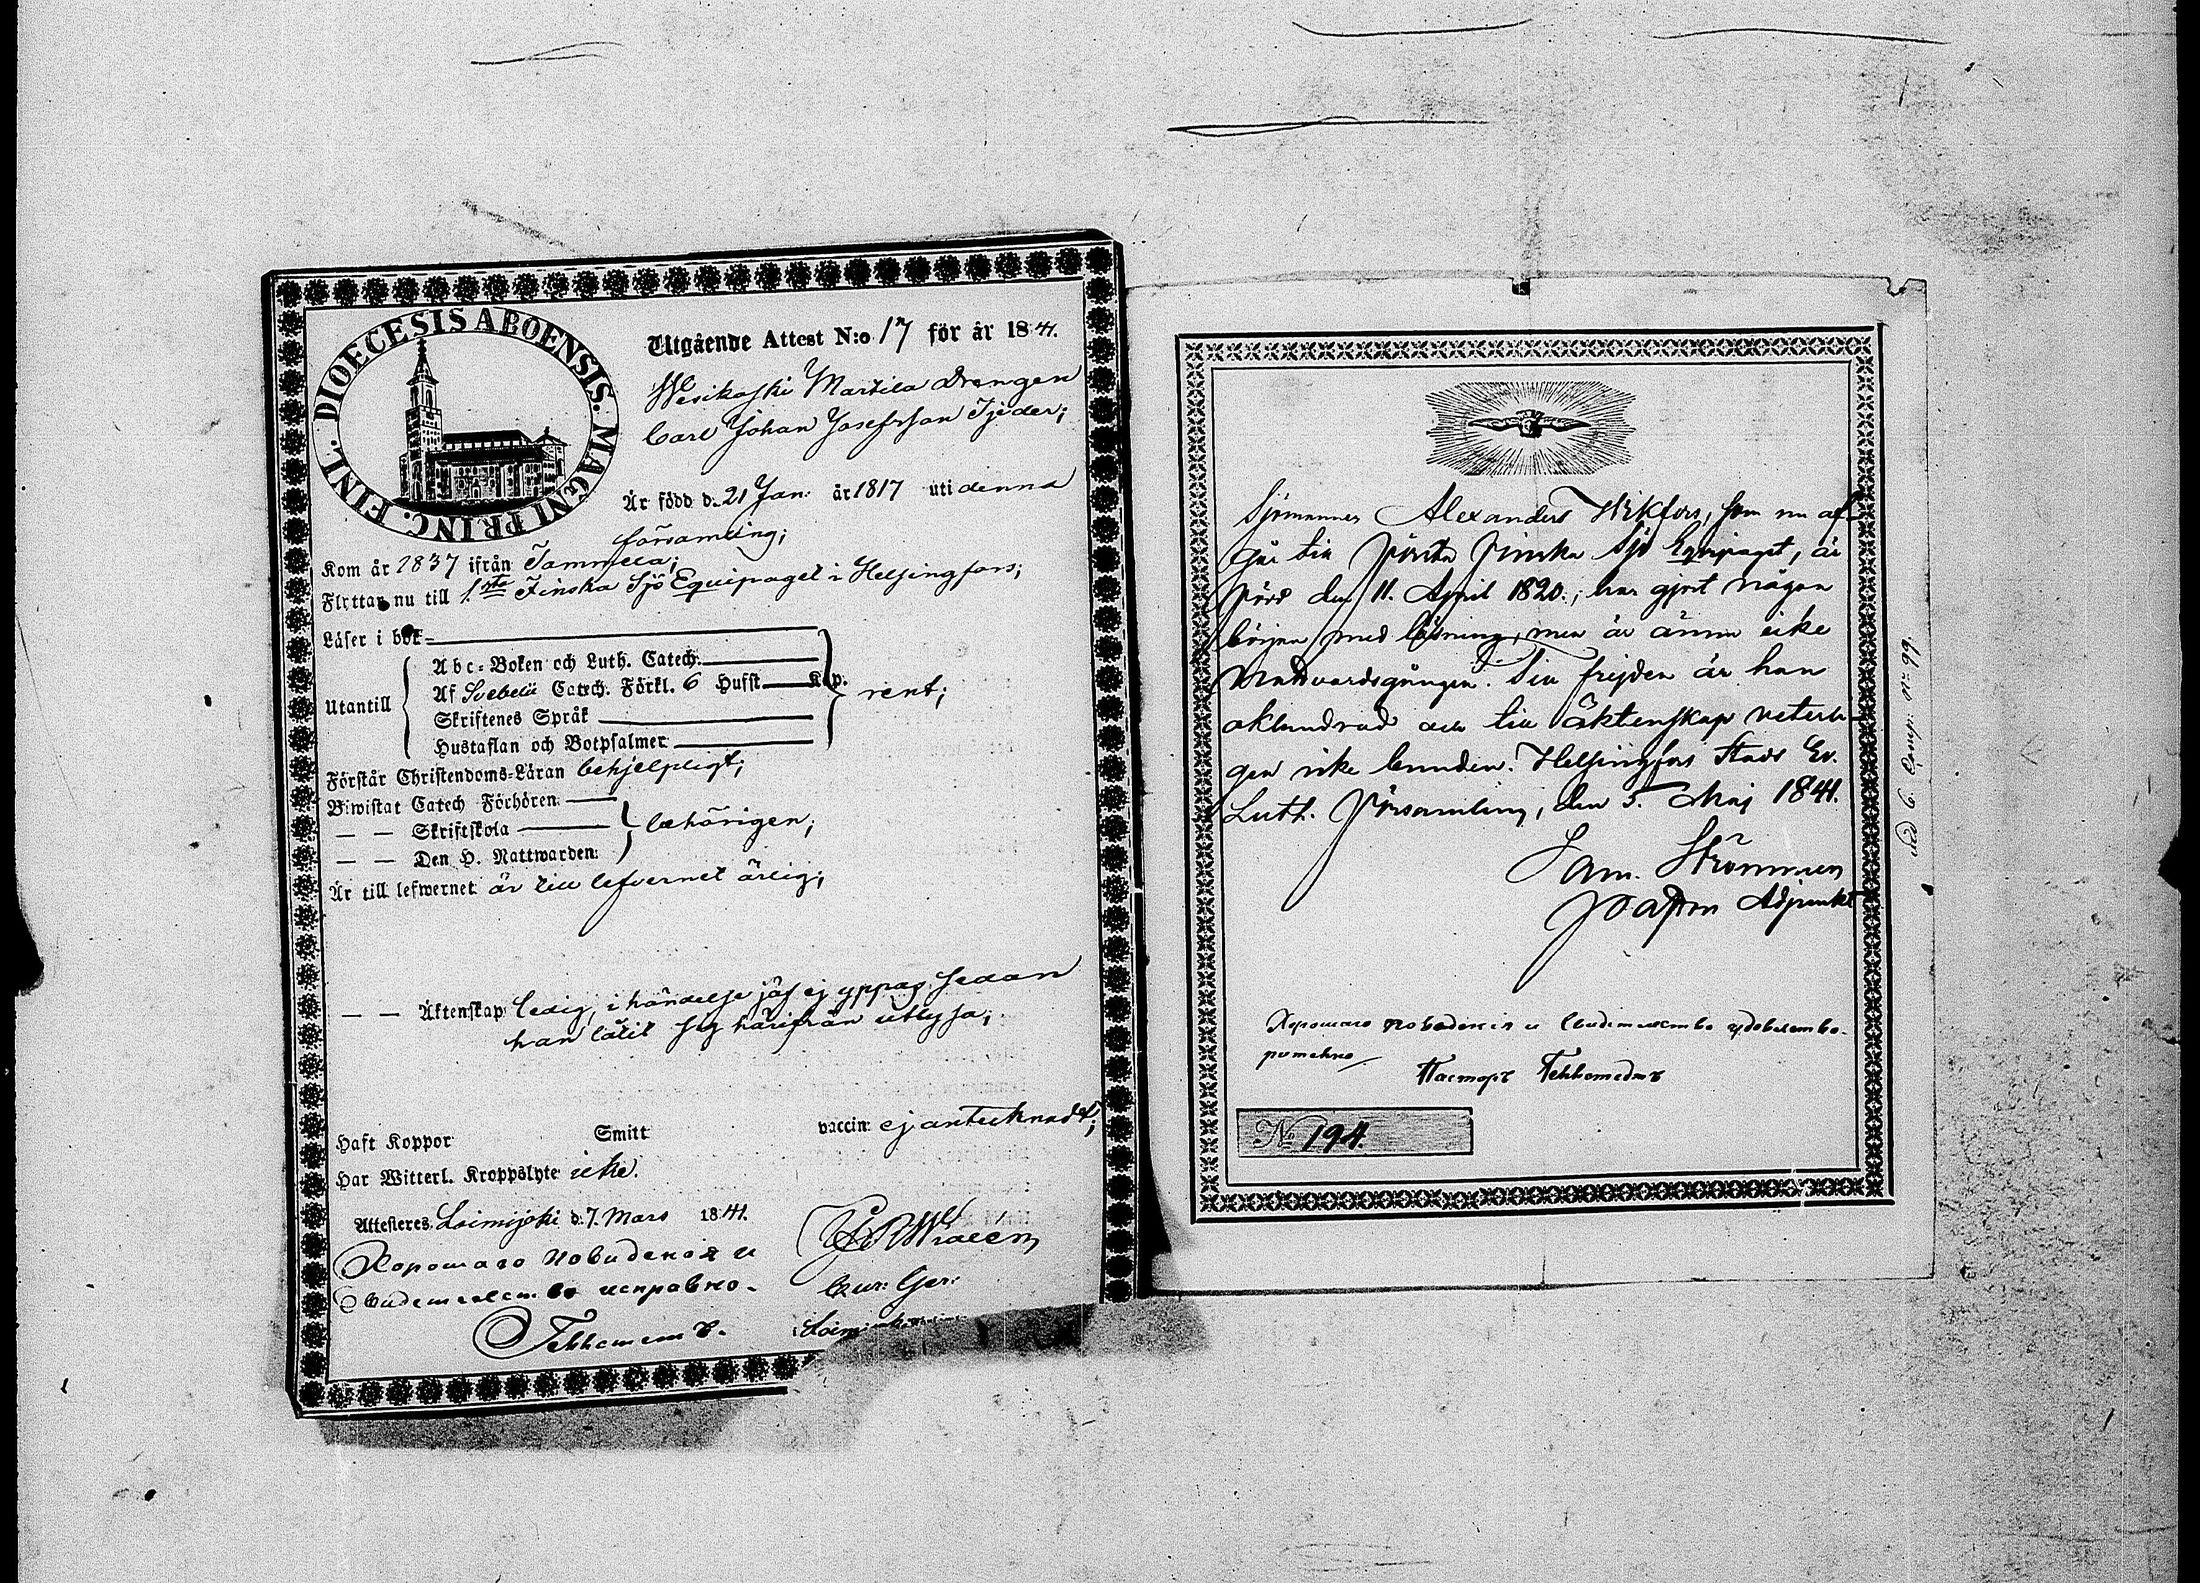 DIOECESIS ABOENSIS. MAGNI PRINC. FINL.
Utgående Attest N:o 17 för år 1841.
Wesikoski Martila Drengen
Carl Johan Josefsson Tjeder;
Är född d. 21 Jan: år 1817 uti denna
församling;
Kom år 1837 ifrån Tammela;
Flyttar nu till 1:sta Finska Sjö Equipaget i Helsingfors;
Läser i bok
Utantill
Abc-Boken och Luth. Catech.
Af Svebelii Catech. Förkl. 6 Hufst. Kap.
Skriftenes Språk
Hustaflan och Botpsalmer
rent;
Förstår Christendoms-Läran behjelpligt;
Biwistat Catech Förhören
— — Skriftskola
— — Den H. Nattwarden
behörigen;
Är till lefwernet är till lefvernet ärlig;
— — Äktenskap ledig, i händelse jäf ej yppas sedan
han låtit sig härifrån utlysa;
Haft Koppor Smitt vaccin: ej antecknadt;
Har Witterl. Kroppslyte icke.
Attesteres Loimijoki d. 7. Mars 1841.
Хорошаго поведения и
Свидетельство исправно.
Wraeén
Cur: Ger:
Sjömannen Alexander Wiktors, som nu af-
går till Första Finska Sjö Equipaget, är
född den 11. April 1820.; har gjort någon
början med läsning, men är ännu icke
Nattvardsgången. Till frejden är han
oklandrad och till äktenskap veterli-
gen icke bunden. Helsingfors Stads Ev.
Luth. Församling, den 5. Maj 1841.
Sam. Strömmer
Pastors Adjunkt
Хорошаго поведения и Свидетельство удовлетво-
рительно
Пасторъ
No 194.
ved 6. Comp. No 99